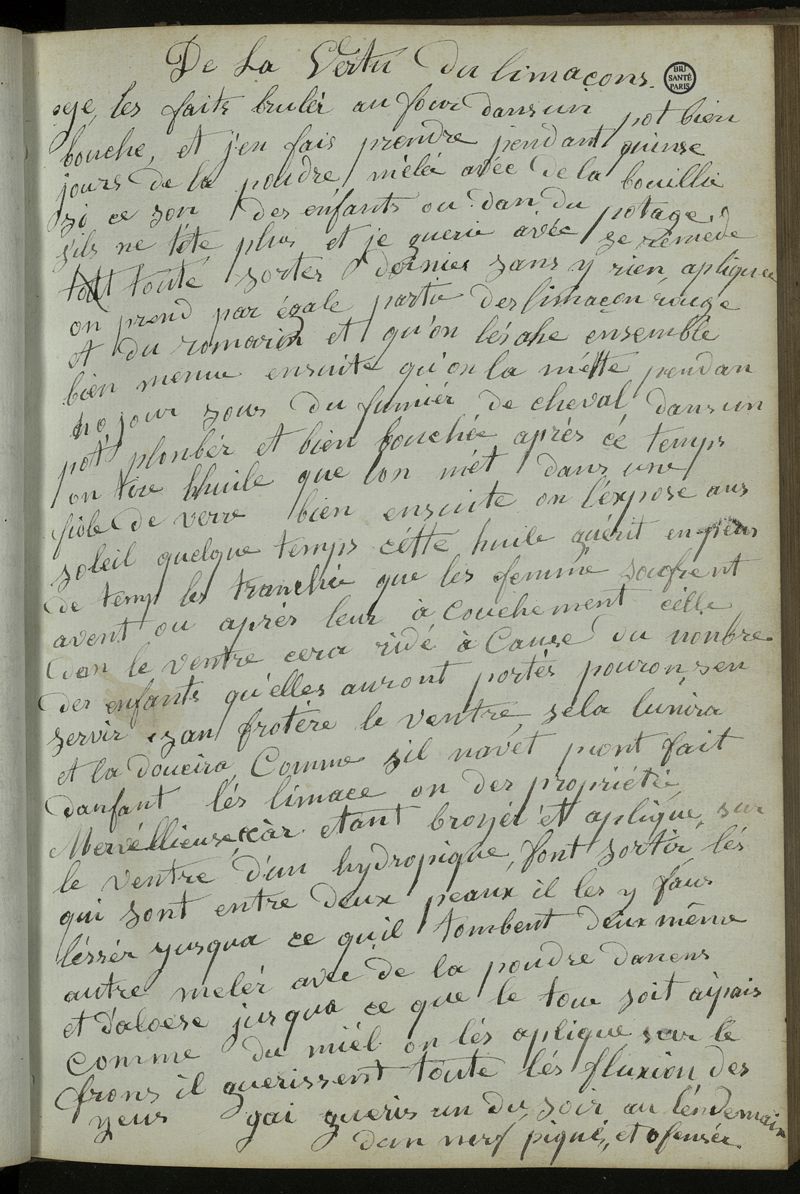 De La Vertu du limaçons.
BIU
SANTÉ
PARIS
je, les faits brulér au four dans un pot bien
bouche, et j'en fais prendre pendant quinse
jours de la poudre mêlée avéc de la bouillie
si ce son des enfants ou dan du potage,
s'ils ne tête plus et je guerie avéc se remède
toute sortes d'ernies sans y rien apliquer
on prend par égale partie des limaçon rouge
et du romarin et qu'on lés ahe ensemble
bien menue ensuite qu'on la mette pendan
40 jour sous du fumiér de cheval dans un
pot plonbér et bien bouchée aprés cé temps
on tire lhuile que lon mét dans une
fiole de verre bien ensuite on l'éxpose aus
soleil quelque temps cétte huile guérit en peus
de temp les tranchée que les femme soufrent
avent ou aprés leur à couchement célle
don le ventre cera ridé à Cause du nonbre
des enfants qu'elles auront portés pouron sen
servir san frotére le ventre, sela lunira
et la douçira Comme sil navét piont fait
danfant lés limace on des propriétée
Mervéllieuse, càr etant broyér ét aplique, sur
le ventre d'un hydropique, font sortir lés
qui sont entre deux peaux il les y faus
léssér jusqua ce qu'il tombent deux même
autre melér avec de la poudre danens
et d'aloese jusqua ce que le tous soit aipais
comme du miél on lés aplique sur le
frons il guerissent toute lés fluxion des
yeus gai gueris un du soir au léndemain
dun nerf piqué, et ofensée.